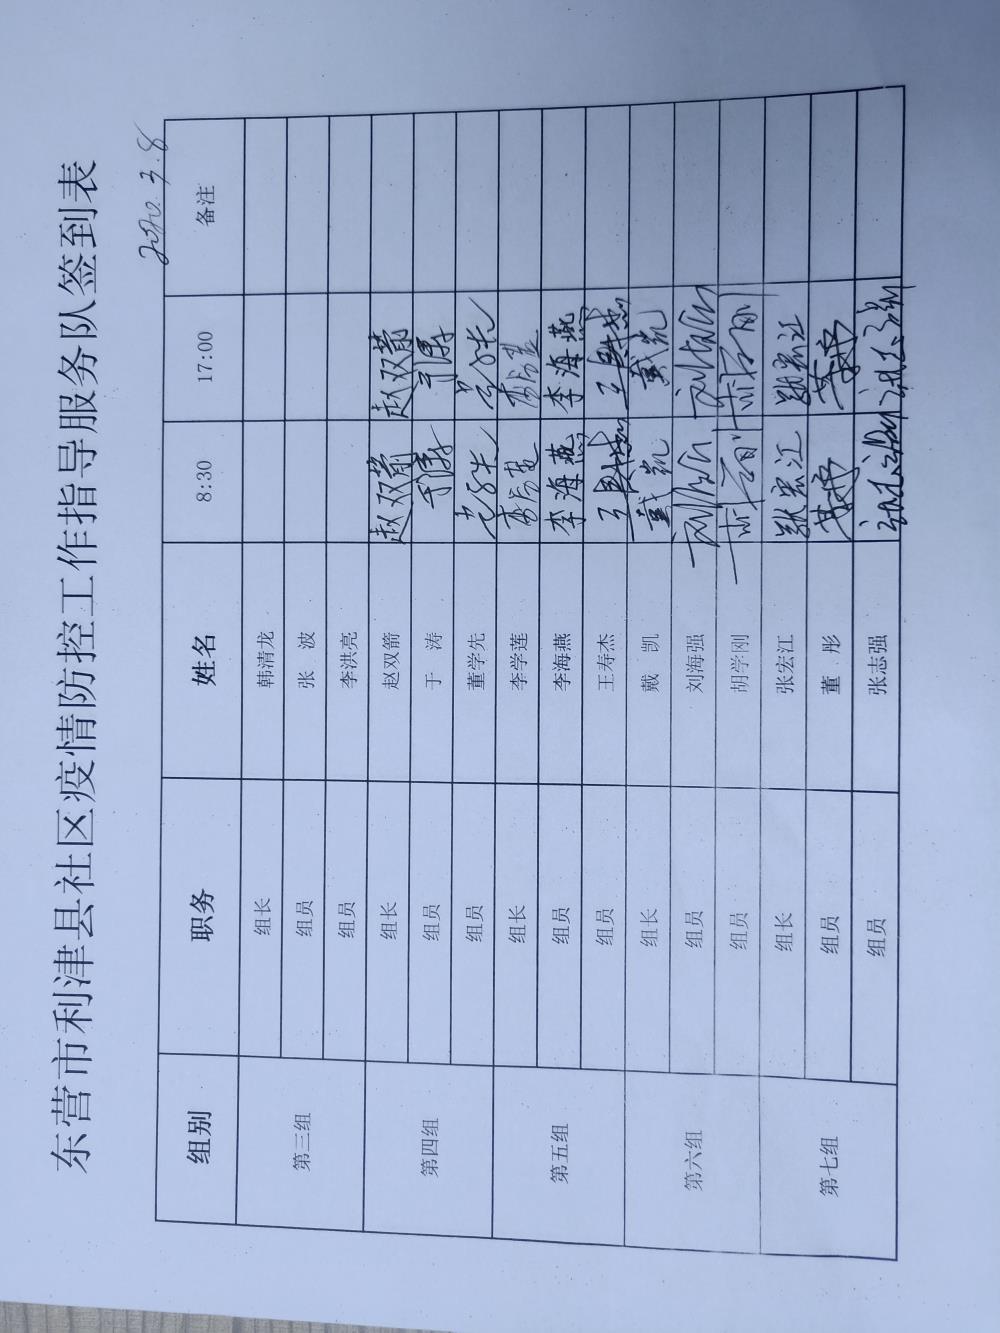 东营市利津县社区疫情防控工作指导服务队签到表
2020.3.8
组别 职务 姓名 8:30 17:00 备注
第三组 组长 韩清龙
组员 张 波
组员 李洪亮
第四组 组长 赵双箭 赵双箭 赵双箭
组员 于 涛 于涛 于涛
组员 董学先 董学先 董学先
第五组 组长 李学莲 李学莲 李学莲
组员 李海燕 李海燕 李海燕
组员 王寿杰 王寿杰 王寿杰
第六组 组长 戴 凯 戴凯 戴凯
组员 刘海强 刘海强 刘海强
组员 胡学刚 胡学刚 胡学刚
第七组 组长 张宏江 张宏江 张宏江
组员 董 彤 董彤 董彤
组员 张志强 张志强 张志强